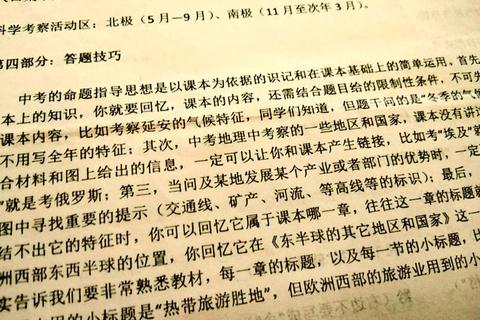 科学考察活动区：北极（5月—9月）、南极（11月至次年3月）。
第四部分：答题技巧
中考的命题指导思想是以课本为依据的识记和在课本基础上的简单运用，首先
本上的知识，你就要回忆，课本的内容，还需结合题目给的限制性条件，不可失
课本内容，比如考察延安的气候特征，同学们知道，但题干问的是“冬季的气候
不用写全年的特征；其次，中考地理中考察的一些地区和国家，课本没有讲
合材料和图上给出的信息，一定可以让你和课本产生链接，比如考“埃及”
”就是考俄罗斯；第三，当问及某地发展某个产业或者部门的优势时，一定
图中寻找重要的提示（交通线、矿产、河流、等高线等的标识）；最后，
结不出它的特征时，你可以回忆它属于课本哪一章，往往这一章的标题就
洲西部东西半球的位置，你回忆它在《东半球的其它地区和国家》这一
实告诉我们要非常熟悉教材，每一章的标题，以及每一节的小标题，比
用的小标题是“热带旅游胜地”，但欧洲西部的旅游业用到的小